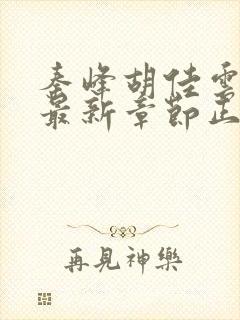 秦峰胡佳雲
最新章節正
再見神樂